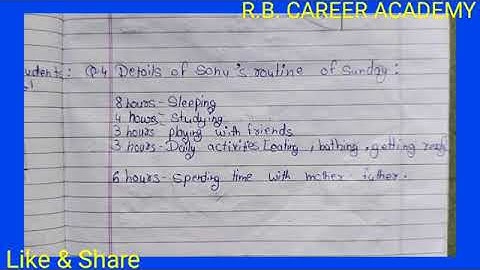 R.B. CAREER ACADEMY
udents: Q.4 Details of Sonu's routine of Sunday:
8 hours - Sleeping
4 hours - Studying
3 hours playing with friends
3 hours - Daily activities Leating, bathing, getting ready
6 hours - Spending time with mother
Like & Share